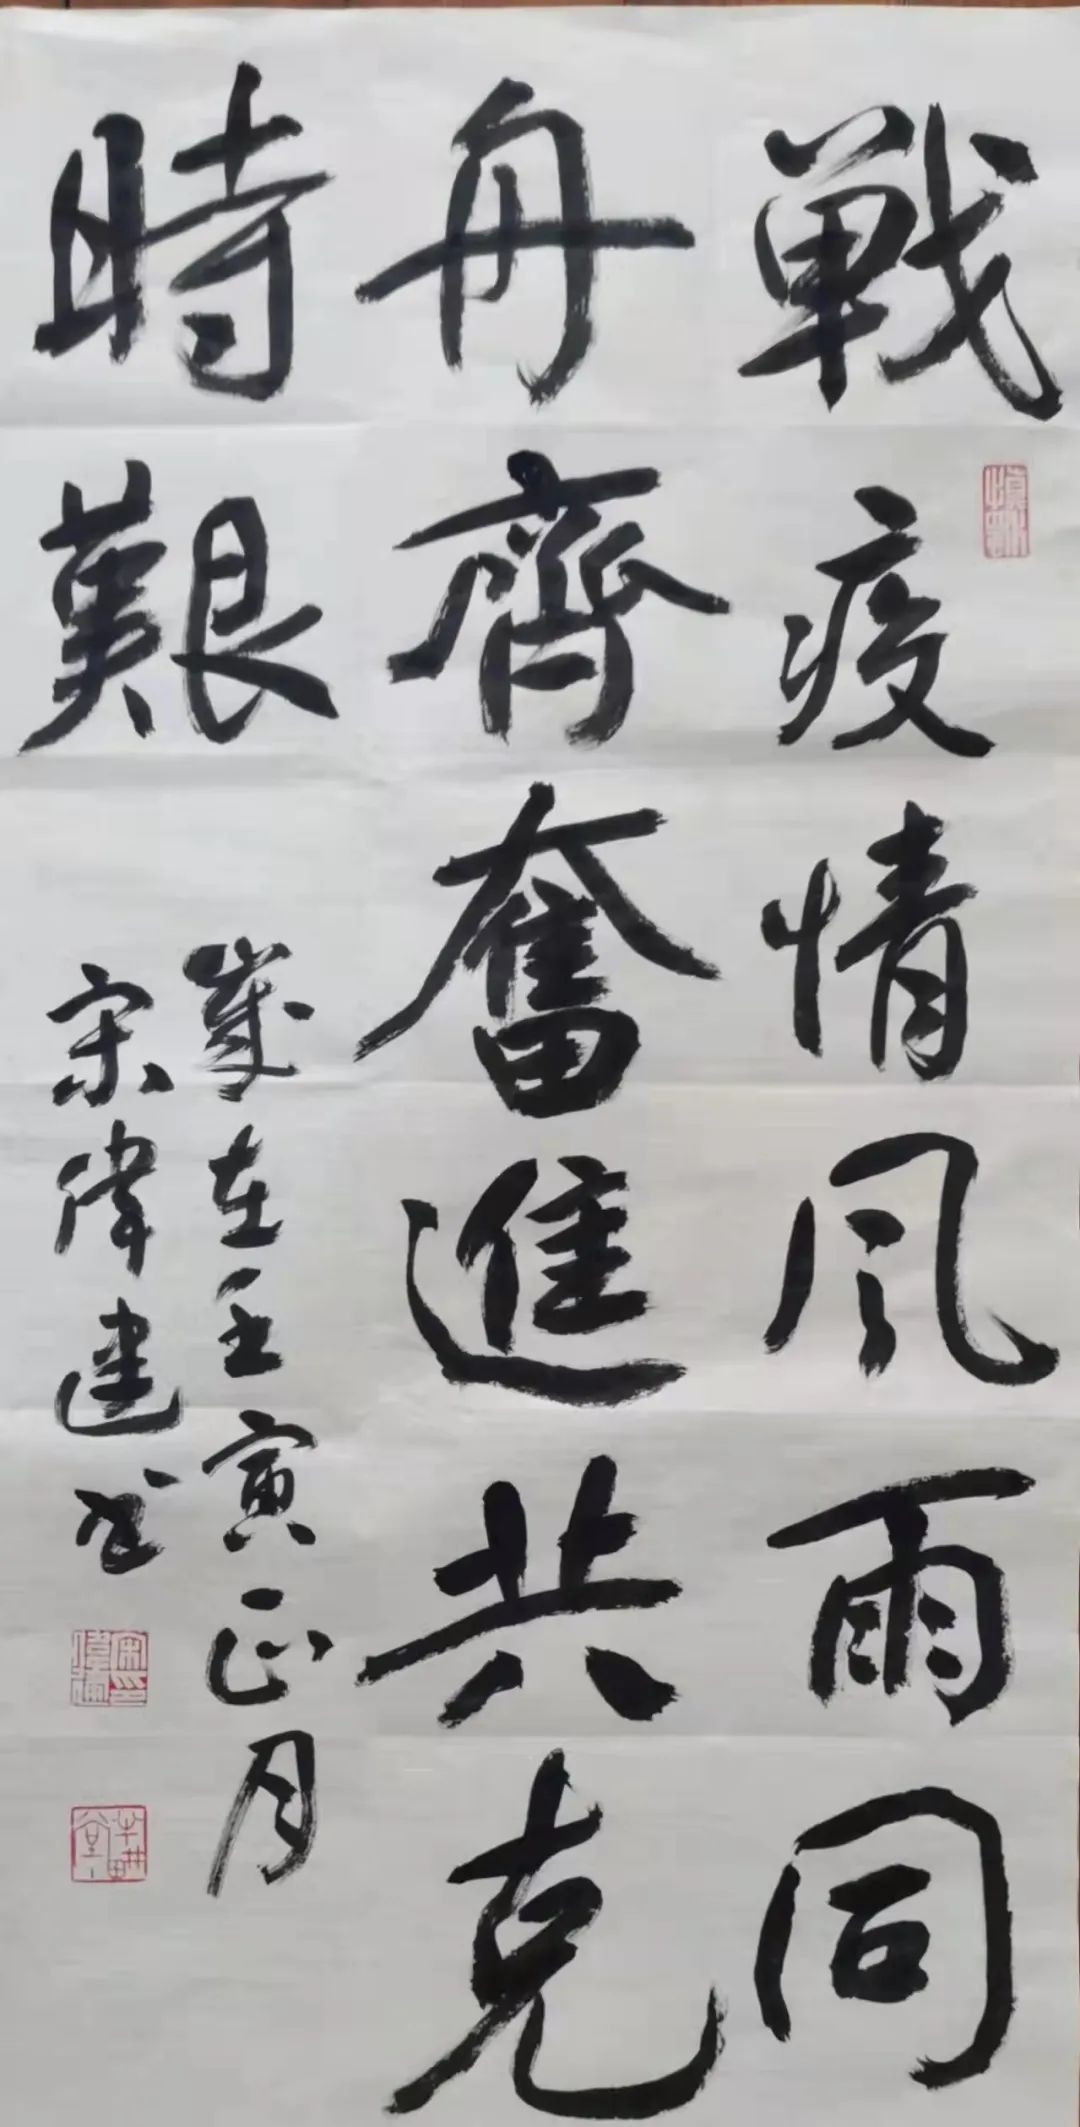 戦疫情风雨同
舟齊奮進共克
時艱
歲在壬寅正月
宋偉建书